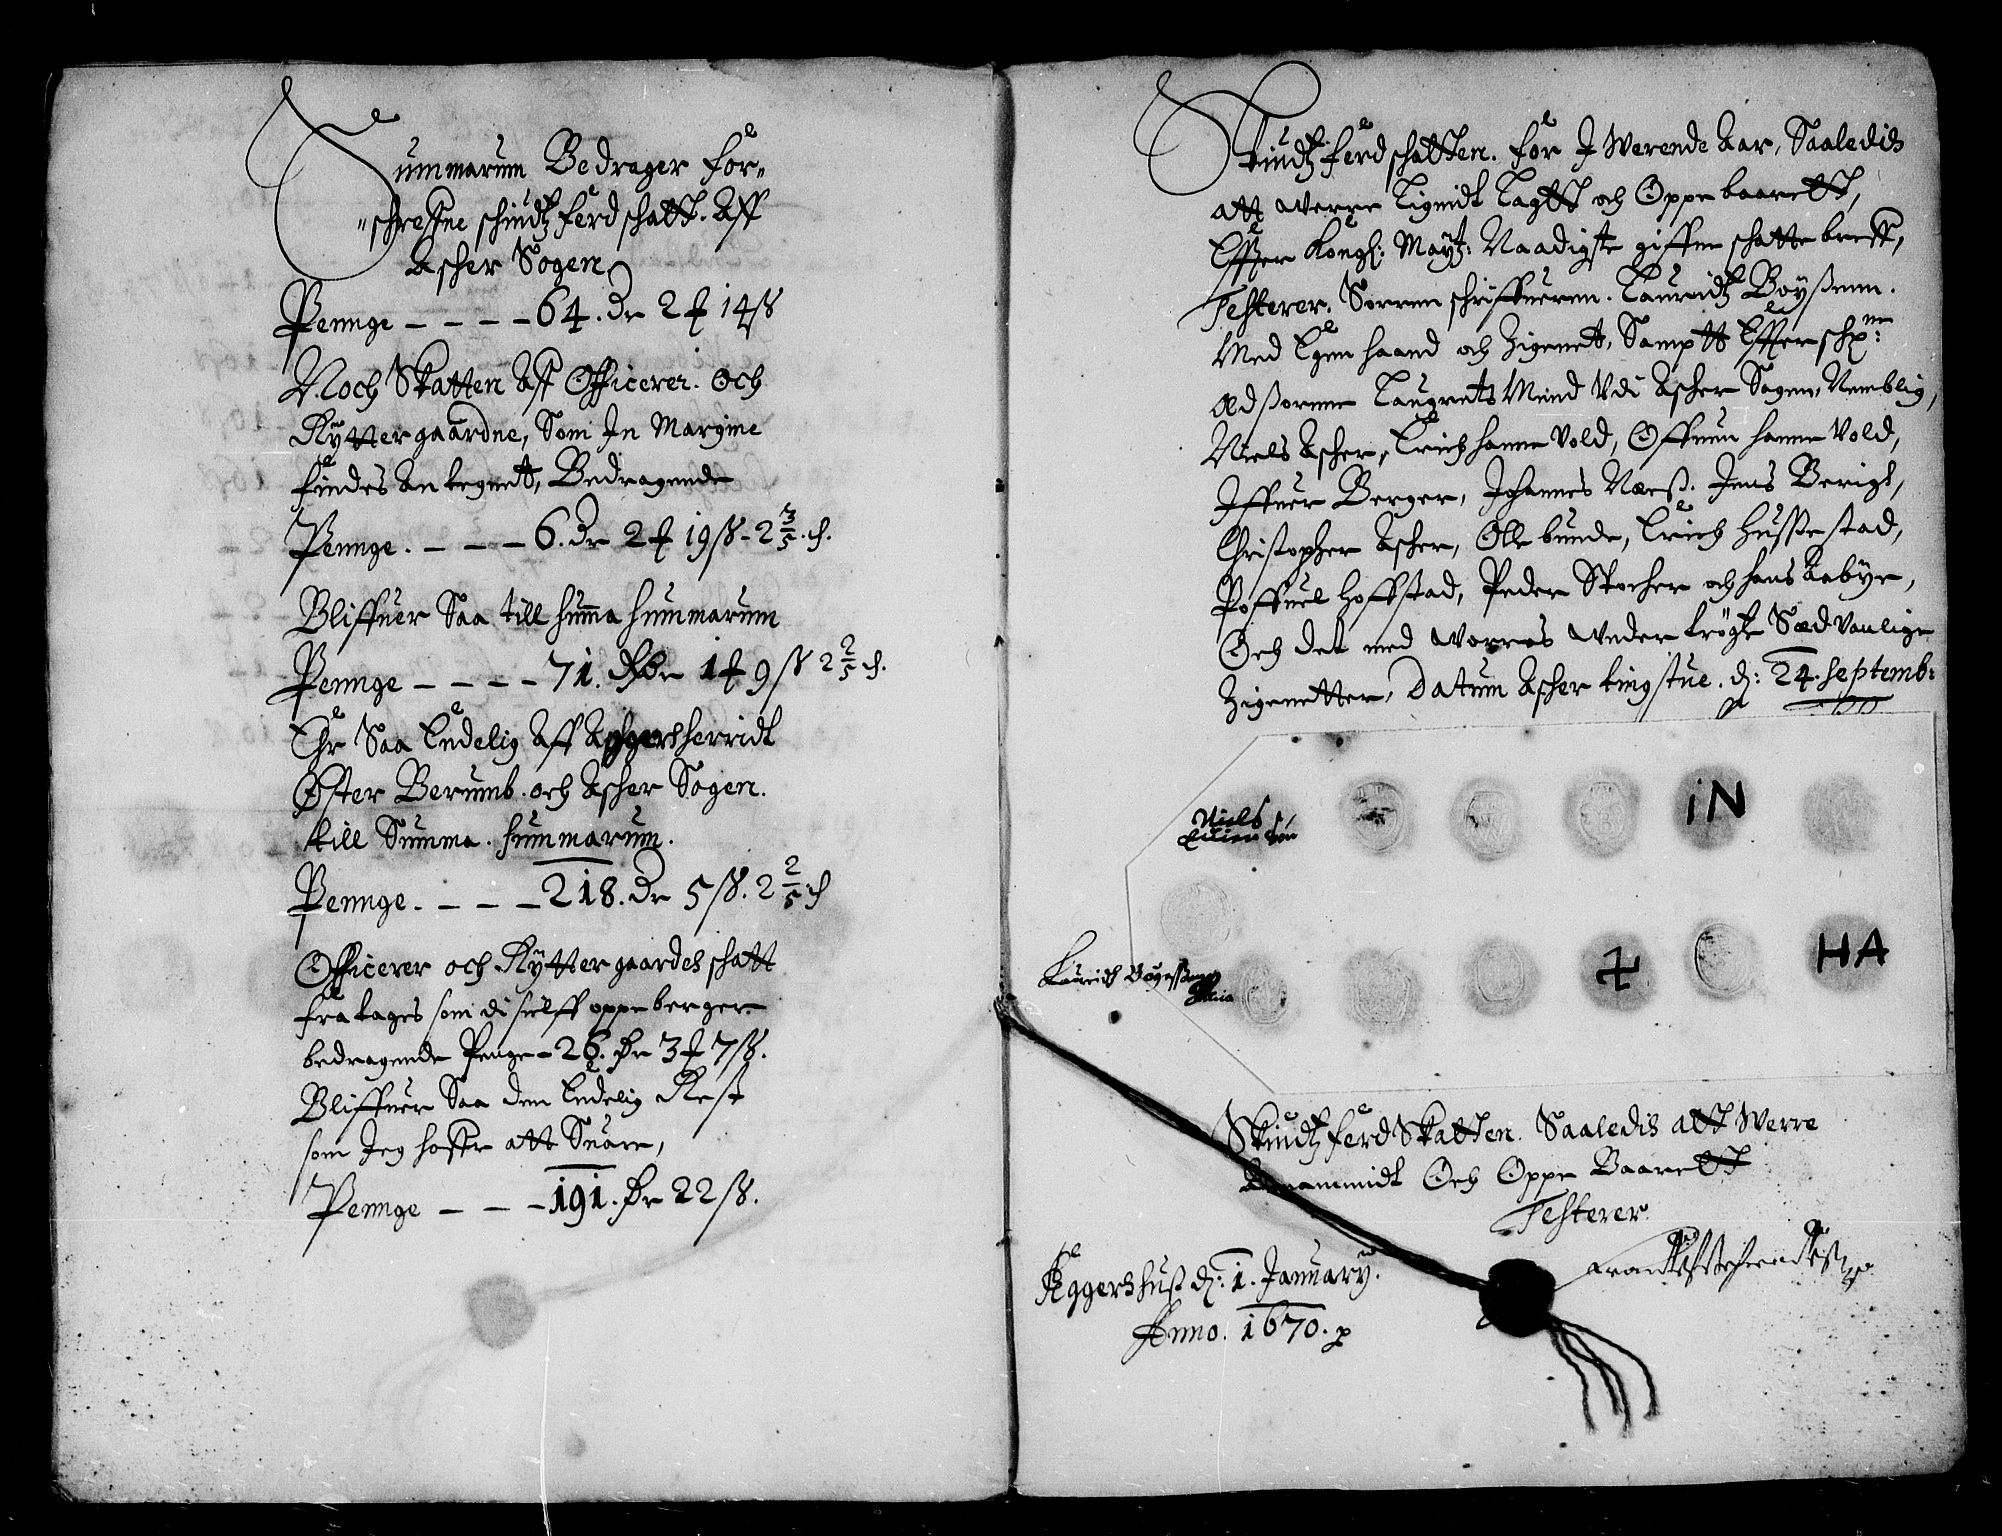 Summarum Bedrager for-
schrefne schiudtzferd schatt. Aff
Ascher Sogen
Pennge - - - - 64. dr 2 ƚ 14 ß
Noch Skatten Aff Officerer. Och
Rÿttergaardne, Som Jn Margine
findes An tegnett, Bedragende
Pennge. - - - 6. dr 2 ƚ 19 ß - 2 3/5 ch.
Bliffuer Saa till summa summarum
Pennge - - - - 71. dr 1 ƚ 9 ß 2 2/5 ch.
Ehr Saa Endelig Aff Aggersherridt
Øster Berumb. och Ascher Sogen.
till Summa. summarum.
Pennge. - - - 218. dr 5 ß. 2 2/5 ch
Officerer och Rÿttergaardes schatt
fra tages som di sielff oppeberger
bedragende Penge - 26. dr 3 ƚ 7 ß.
Bliffuer Saa den Endelig Rest
som Jeg hoffr att Suare,
Pennge - - - 191. dr 22 ß.
Skiudtzferd schatten. for J Werende Aar, Saaledis
att verre Lignidt Lagtt och Oppebaarett,
Effter Kongl: Maytz: Naadigste giffne schatte breff,
Testerer. Sorrenschriffueren. Lauridtz Boÿßenn.
Med Egen haand och Zignett, Samptt Effterschr:ne
Edsorne Laugrets Mend Vdi Ascher Sogen, Nemblig,
Niels Ascher, Erich hanne vold, Offuen hanne vold,
Jffuer Berger, Johannes Næß. Jens Berigt,
Christopher Ascher, Olle bunde, Erich Hussestad,
Poffuel Hoffstad, Peder Stocher och hans Aabÿe,
Och det med worres under trøgte Sædvanlige
Zignetter, Datum Ascher tingstue. d: 24. septemb:
Niels
iN
HA
Lauridtz Boyeßenn
Skiudtzferd Skatten. Saaledis att Werre
Annammidt Och Oppe Baarett
Testerer
Aggershuß d: 1. January.
Anno. 1670.